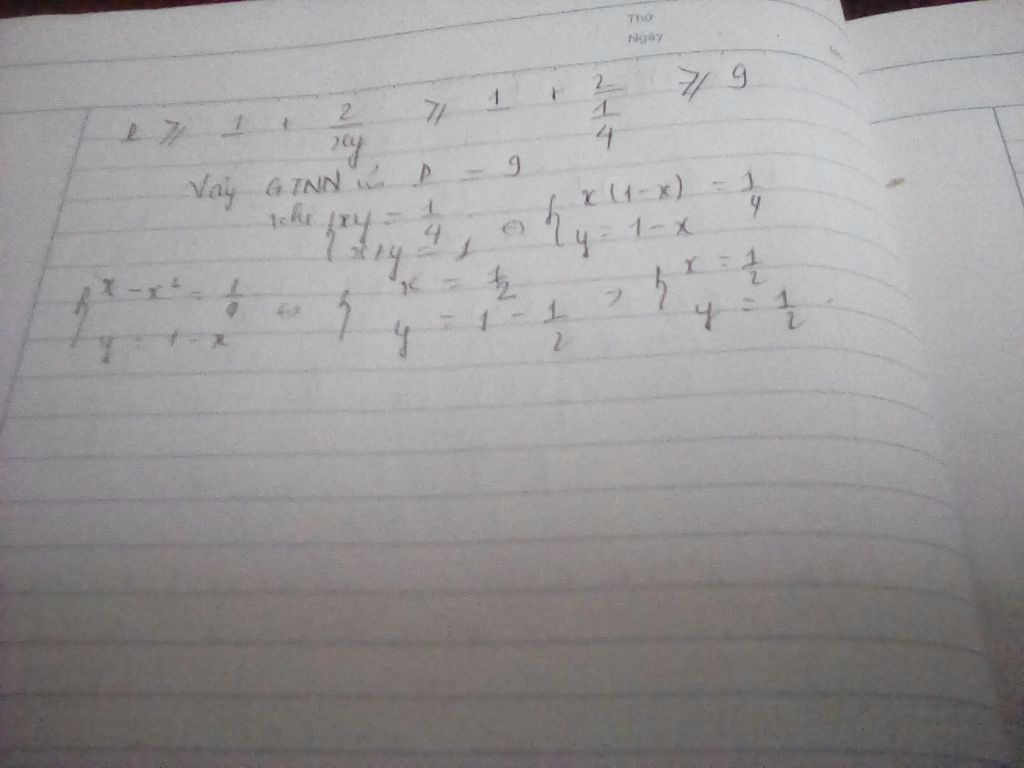 Thứ
Ngày
P ≥ 1 + 2/xy ≥ 1 + 2/(1/4) ≥ 9
Vậy GTNN của P = 9
khi { xy = 1/4 ; x + y = 1 ⇔ { x(1-x) = 1/4 ; y = 1 - x
{ x - x² = 1/4 ; y = 1 - x ⇔ { x = 1/2 ; y = 1 - 1/2 ⇒ { x = 1/2 ; y = 1/2 .